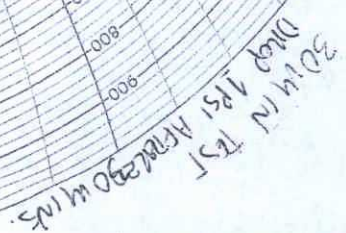 800
900
30 MIN TEST
DROP 1 PSI AFTER 30 MINS.